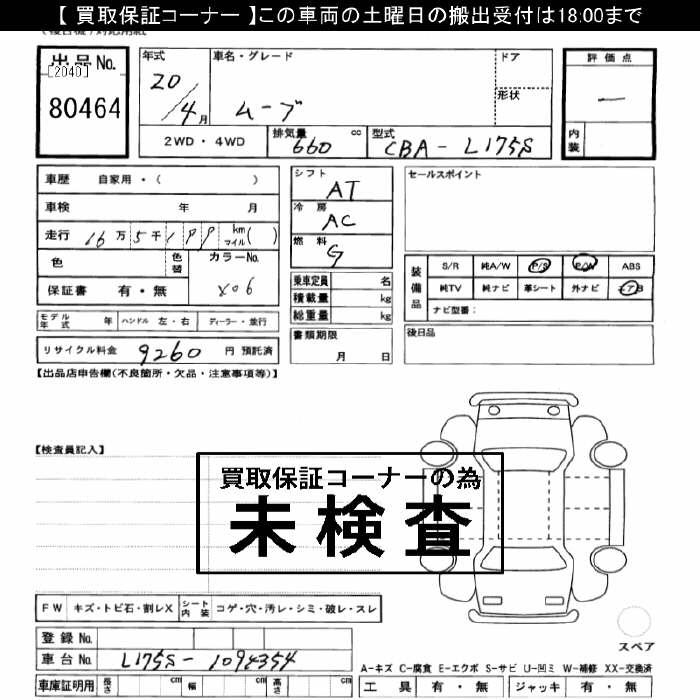 【 買取保証コーナー 】この車両の土曜日の搬出受付は18:00まで
出品No.
[2040]
80464
年式 車名・グレード ドア
20/4月 ムーブ 形状
2WD・4WD 排気量 660 cc 型式 CBA-L175S
評価点
—
内装
車歴 自家用・( )
車検 年 月
走行 16万5千199 km マイル( )
色 色替 カラーNo. X06
保証書 有・無
モデル年式 年 ハンドル 左・右 ディーラー・並行
リサイクル料金 9260 円 預託済
シフト AT
冷房 AC
燃料 G
乗車定員 名
積載量 kg
総重量 kg
書類期限
月 日
セールスポイント
装備品 S/R 純A/W P/S P/W ABS
純TV 純ナビ 革シート 外ナビ エアB
ナビ型番:
後日品
【出品店申告欄(不良箇所・欠品・注意事項等)】
【検査員記入】
買取保証コーナーの為
未検査
FW キズ・トビ石・割レX シート内装 コゲ・穴・汚レ・シミ・破レ・スレ
登録No.
車台No. L175S-
車庫証明用 長さ cm 幅 cm 高さ cm
スペア
A-キズ C-腐食 E-エクボ S-サビ U-凹ミ W-補修 XX-交換済
工具 有・無 ジャッキ 有・無